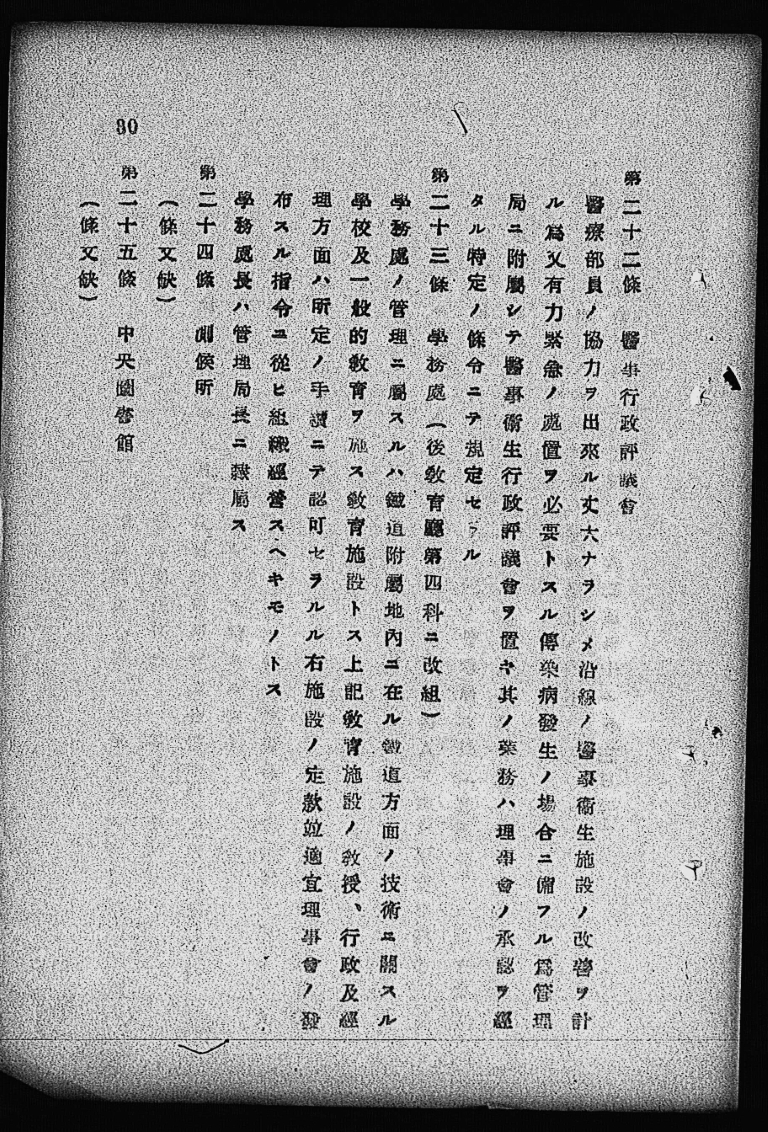 第二十二條　醫事行政評議會
醫療部員ノ協力ヲ出來ル丈大ナラシメ沿線ノ醫事衞生施設ノ改善ヲ計
ル爲又有力緊急ノ處置ヲ必要トスル傳染病發生ノ場合ニ備フル爲管理
局ニ附屬シテ醫事衞生行政評議會ヲ置キ其ノ業務ハ理事會ノ承認ヲ經
タル特定ノ條令ニテ規定セラル
第二十三條　學務處（後敎育廳第四科ニ改組）
學務處ノ管理ニ屬スルハ鐵道附屬地內ニ在ル鐵道方面ノ技術ニ關スル
學校及一般的敎育ヲ施ス敎育施設トス上記敎育施設ノ敎授、行政及經
理方面ハ所定ノ手續ニテ認可セラルル右施設ノ定款竝適宜理事會ノ發
布スル指令ニ從ヒ組織經營スヘキモノトス
學務處長ハ管理局長ニ隸屬ス
第二十四條　測候所
（條文缺）
第二十五條　中央圖書館
（條文缺）
80